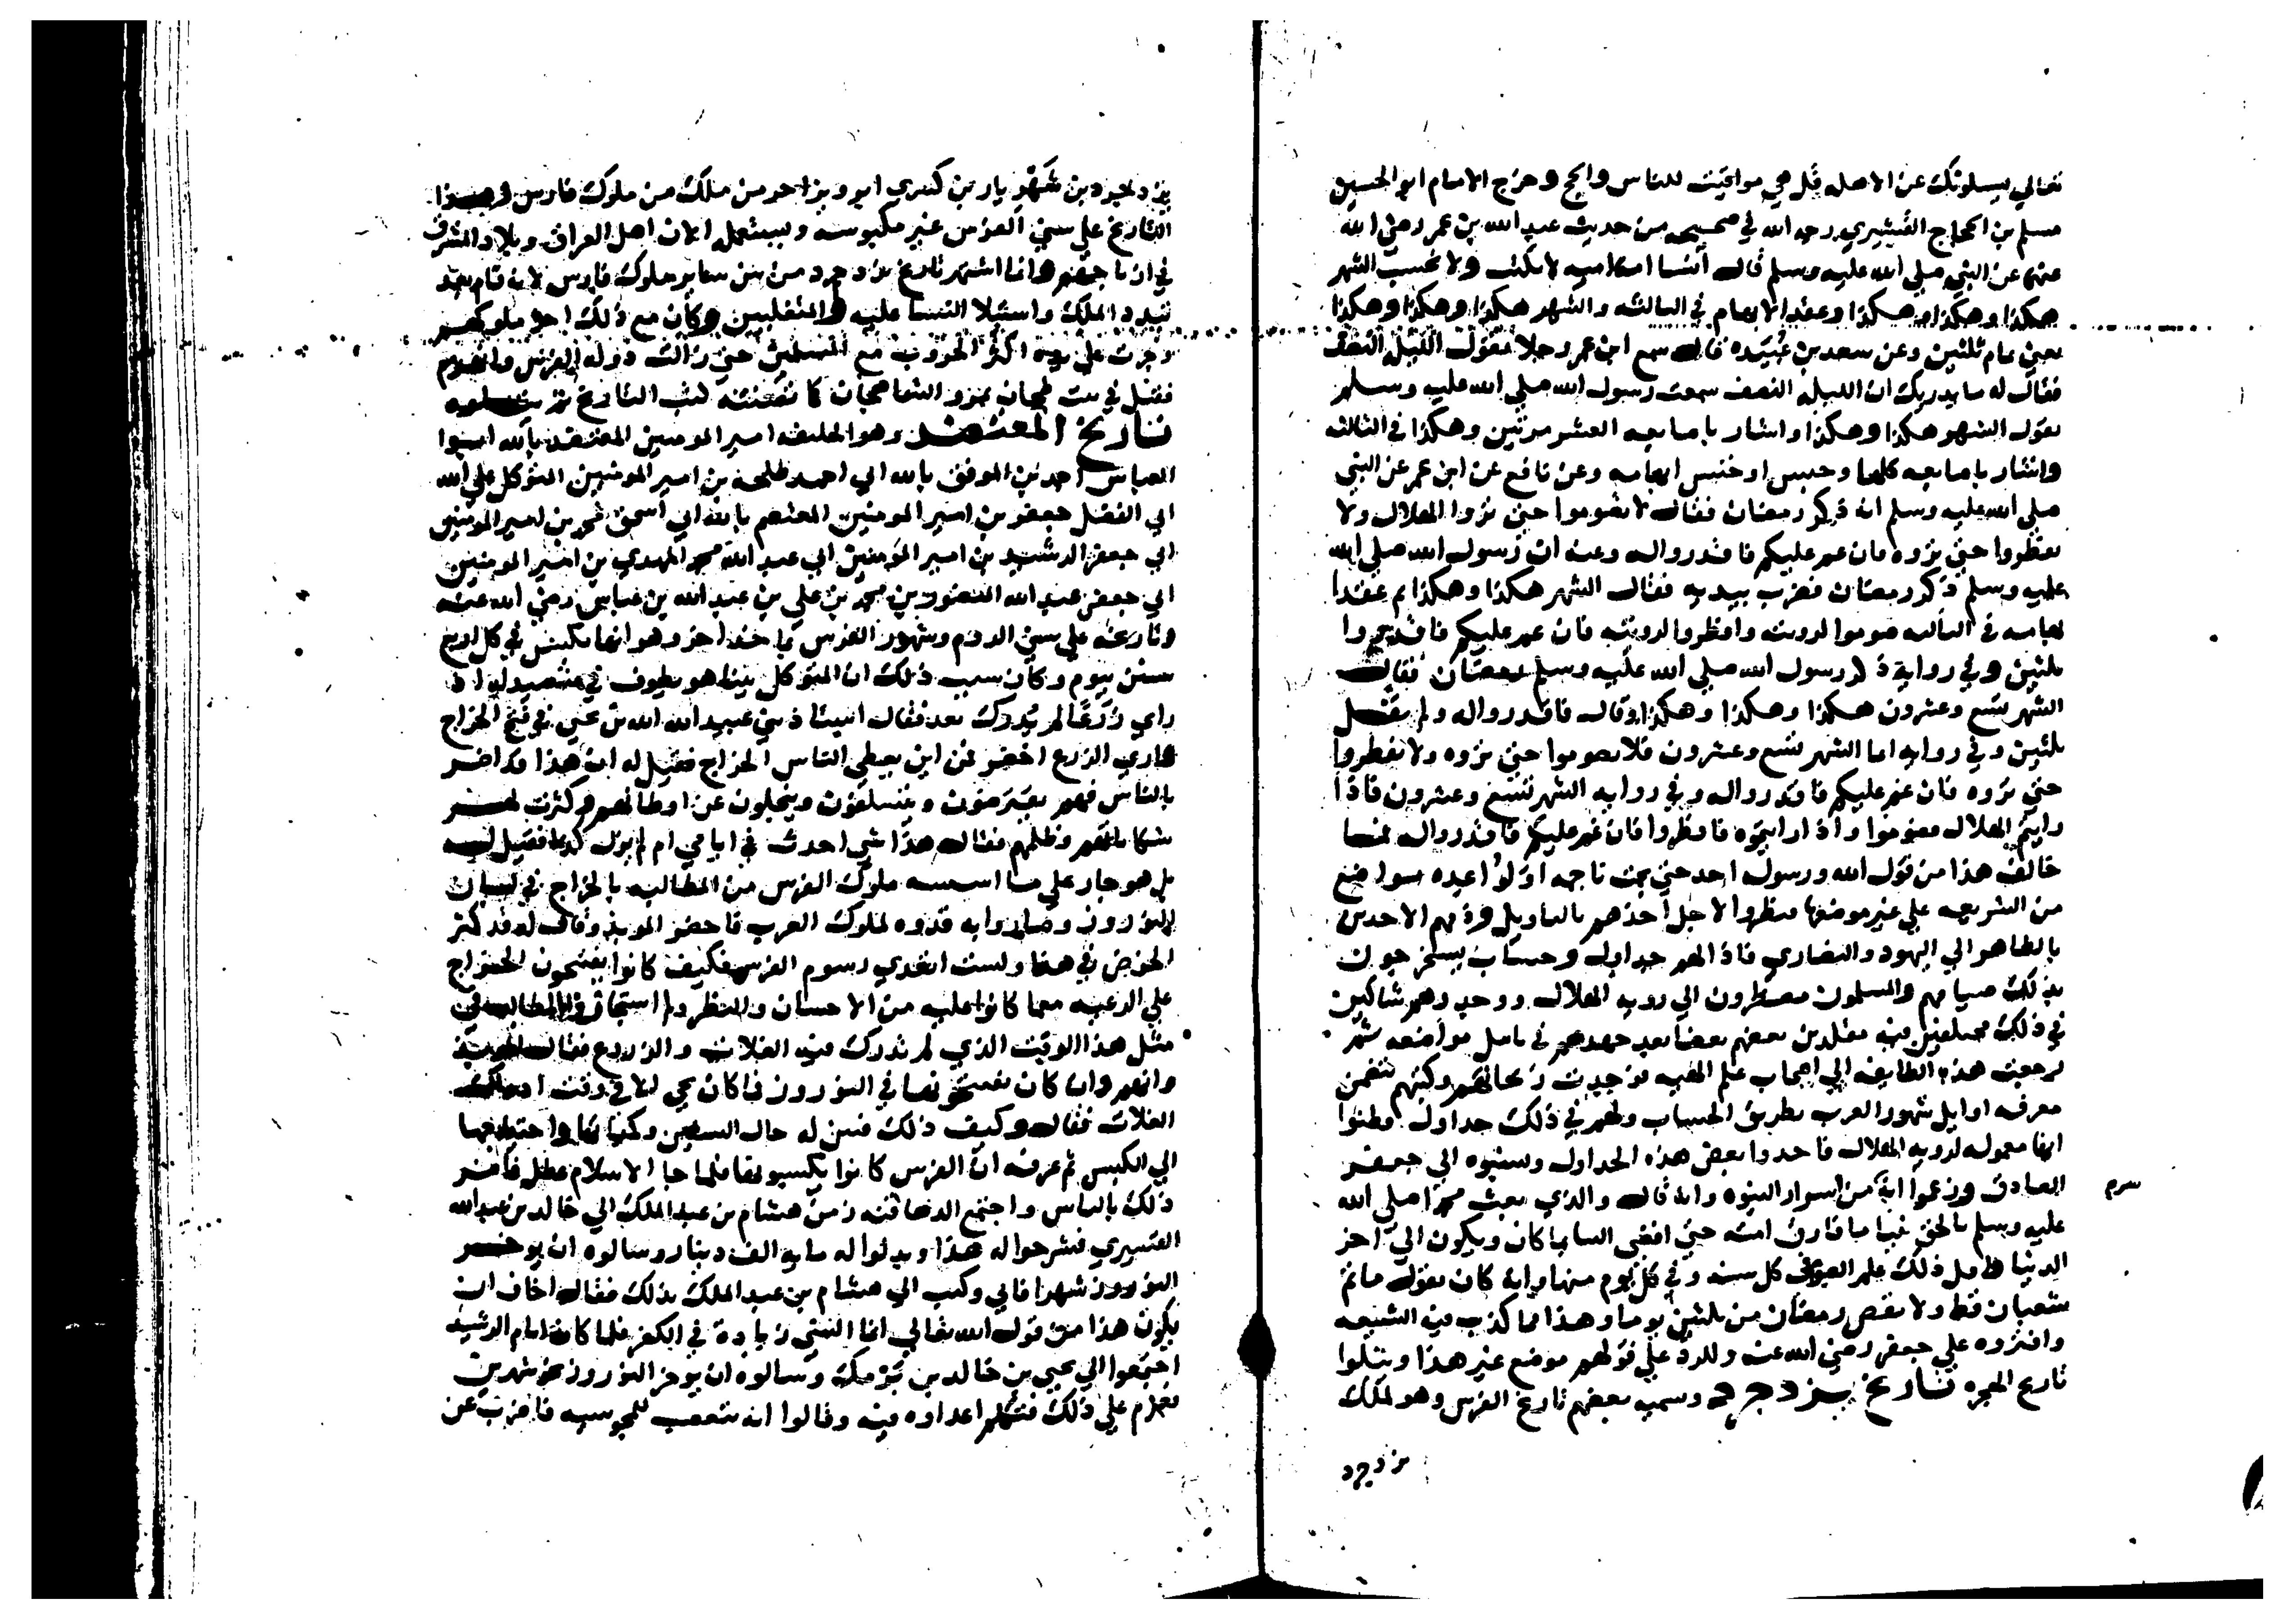 تعالي يسلونك عن الاهله قل هي مواقيت للناس والحج وخرج الامام ابو الحسين
مسلم بن الحجاج القشيري رحه الله في صحيحه من حديث عبد الله بن عمر رضي الله
عنهما عن النبي صلي الله عليه وسلم قال انا امة اميه لا نكتب ولا نحسب الشهر
هكذا وهكذا وهكذا وعقد الابهام في الثالثه والشهر هكذا وهكذا وهكذا
يعني تمام ثلثين وعن سعد بن عبيده قال سمع ابن عمر رجلا يقول الليله النصف
فقال له ما يدريك ان الليله النصف سمعت رسول الله صلي الله عليه وسلم
يقول الشهر هكذا وهكذا واشار باصابعه العشر مرتين وهكذا في الثالثه
واشار باصابعه كلها وحبس او خنس ابهامه وعن نافع عن ابن عمر عن النبي
صلي الله عليه وسلم انه ذكر رمضان فقال لا تصوموا حتي تروا الهلال ولا
تفطروا حتي تروه فان غم عليكم فاقدروا له وعنه ان رسول الله صلي الله
عليه وسلم ذكر رمضان فضرب بيديه فقال الشهر هكذا وهكذا ثم عقد
ابهامه في الثالثه صوموا لرويته وافطروا لرويته فان غم عليكم فاقدروا
ثلثين وفي رواية ذكر رسول الله صلي الله عليه وسلم رمضان فقال
الشهر تسع وعشرون هكذا وهكذا وهكذا وقال فاقدروا له ولم يقل
ثلثين وفي روايه انما الشهر تسع وعشرون فلا تصوموا حتي تروه ولا تفطروا
حتي تروه فان غم عليكم فاقدروا له وفي روايه الشهر تسع وعشرون فاذا
رايتم الهلال فصوموا واذا رايتموه فافطروا فان غم عليكم فاقدروا له
خالف هذا من قول الله ورسوله احد حتي
من الشريعه علي غير موضعها لاجل اخذهم بالتاويل
بالظاهر الي اليهود والنصاري فاذا لهم جداول وحساب يستخرجون
بذلك صيامهم والمسلمون مضطرون الي رويه الهلال ووجدوهم شاكين
في ذلك مختلفين فيه مقلدين بعضهم بعضا بعد جهدهم في تامل مواضعه ثم
رجعت هذه الطايفه الي اصحاب علم الهيه فوجدت زيجاتهم وكتبهم تتضمن
معرفه اوايل شهور العرب بطريق الحساب ولهم في ذلك جداول وظنوا
انها معموله لرويه الهلال فاخذوا بعض هذه الجداول ونسبوه الي جعفر
الصادق وزعموا انه من اسرار النبوه وانه قال والذي بعث محمدا صلي الله
عليه وسلم بالحق نبيا ما فارق امته حتي افضي الينا بما كان ويكون الي اخر
الدنيا كل سنه وفي كل يوم منها وانه كان يقول ما تم
شعبان قط ولا نقص رمضان من ثلثين يوما وهذا مما كذبت فيه الشيعه
وافتروه علي جعفر رضي الله عنه وللرد علي قولهم موضع غير هذا ويتلوا
تاريخ الهجره تاريخ يزدجرد وسميه بعضهم تاريخ الفرس وهو لملك
يزدجرد
يزدجرد بن شهريار بن كسري ابرويز اخر من ملك من ملوك فارس وهذا
التاريخ علي سني الفرس غير مكبوسه ويستعمله الان اهل العراق وبلاد المشرق
في ازياجهم وانما اشتهر تاريخ يزدجرد من بين ساير ملوك فارس لانه قام بعد
تبدد الملك واستيلا النسا عليه والمتغلبين وكان مع ذلك اخر ملوكهم
وجرت علي يده اكثر الحروب مع المسلمين حتي زالت دوله الفرس وانهزم
فقتل في بيت طحان بمرو كما تضمنته كتب التاريخ
تاريخ المعتضد وهو الخليفه امير المومنين المعتضد بالله ابوا
العباس احمد بن الموفق بالله ابي احمد طلحة بن امير المومنين المتوكل علي الله
ابي الفضل جعفر بن امير المومنين المعتصم بالله ابي اسحق محمد بن امير المومنين
ابي جعفر الرشيد بن امير المومنين ابي عبد الله محمد المهدي بن امير المومنين
ابي جعفر عبد الله المنصور بن محمد بن علي بن عبد الله بن عباس رضي الله عنه
وتاريخه علي سني الروم وشهور الفرس وهو انها تكبس في كل اربع
سنين بيوم وكان سبب ذلك ان المتوكل بينا هو يطوف في متصيد له اذ
راي زرعا لم يدرك بعد فقال استاذنني عبيد الله الله بن يحيي في فتح الخراج
واري الزرع اخضر فمن اين يعطي الناس الخراج فقيل له ان هذا قد اضر
بالناس فهم يقترضون ويتسلفون وينجلون عن اوطانهم وكثرت لهم
شكاياتهم وظلمهم فقال هذا شي احدث في ايامي ام لم يزل كذا فقيل له
بل هو جار علي ما اسسه ملوك الفرس من المطالبه بالخراج في ابان
النوروز وصاروا به قدوه لملوك العرب فاحضر الموبذ وقال له قد كثر
الخوض في هذا ولست اتعدي رسوم الفرس فكيف كانوا يفتتحون الخراج
علي الرعيه مع ما كانوا عليه من الاحسان والنظر ولم استجازوا المطالبه في
مثل هذا الوقت الذي لم تدرك فيه الغلات والزروع فقال الموبذ
وانهم وان كان يفتتحونها في النوروز فما كان يجي الا في وقت ادراك
الغلات فقال وكيف ذلك فبين له حال السنين وكمياتها واحتياجها
الي الكبس ثم عرفه ان الفرس كانوا يكبسونها فلما جا الاسلام عطل فاضر
ذلك بالناس واجتمع الدهاقنه زمن هشام بن عبد الملك الي خالد بن عبد الله
القسيري فشرحوا له هذا وبذلوا له مايه الف دينار وسالوه ان يوخر
النوروز شهرا فابي وكتب الي هشام بن عبد الملك بذلك فقال اخاف ان
يكون هذا من قول الله تعالي انما النسي زيادة في الكفر فلما كان ايام الرشيد
اجتمعوا الي يحيي بن خالد بن برمك وسالوه ان يوخر النوروز نحو شهرين
فعزم علي ذلك فتكلم اعداوه فيه وقالوا انه يتعصب للمجوسيه فاضرب عن